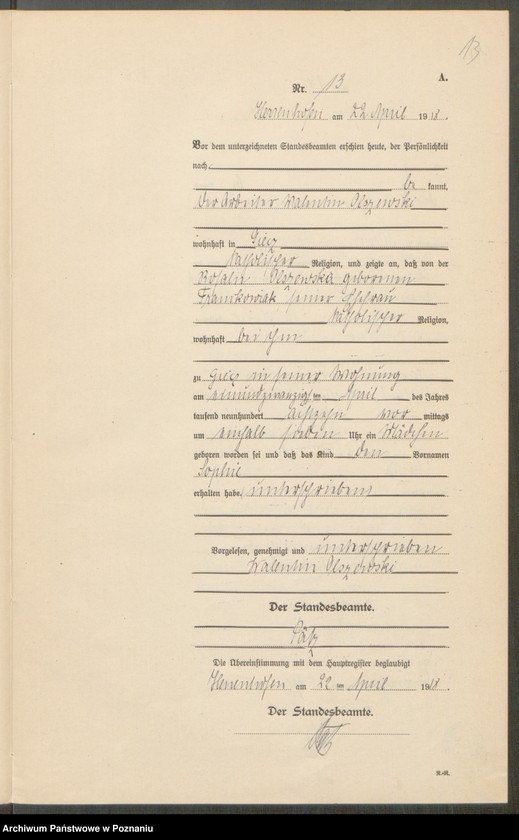 13
A.
Nr. 13
Herrenhofen am 22 April 1918.
Vor dem unterzeichneten Standesbeamten erschien heute, der Persönlichkeit
nach,
be kannt,
Der Arbeiter Valentin Olszewski
wohnhaft in Giecz
katholischer Religion, und zeigte an, daß von der
Rosalie Olszewska geborenen
Frankowiak seiner Ehefrau
katholischer Religion,
wohnhaft bei ihm
zu Giecz in seiner Wohnung
am einundzwanzigsten April des Jahres
tausend neunhundert achtzehn vor mittags
um einhalb sieben Uhr ein Mädchen
geboren worden sei und daß das Kind den Vornamen
Sophie
erhalten habe.
Vorgelesen, genehmigt und unterschrieben
Valentin Olszewski
Der Standesbeamte.
Die Übereinstimmung mit dem Hauptregister beglaubigt
Herrenhofen am 22 ten April 1918.
Der Standesbeamte.
Archiwum Państwowe w Poznaniu